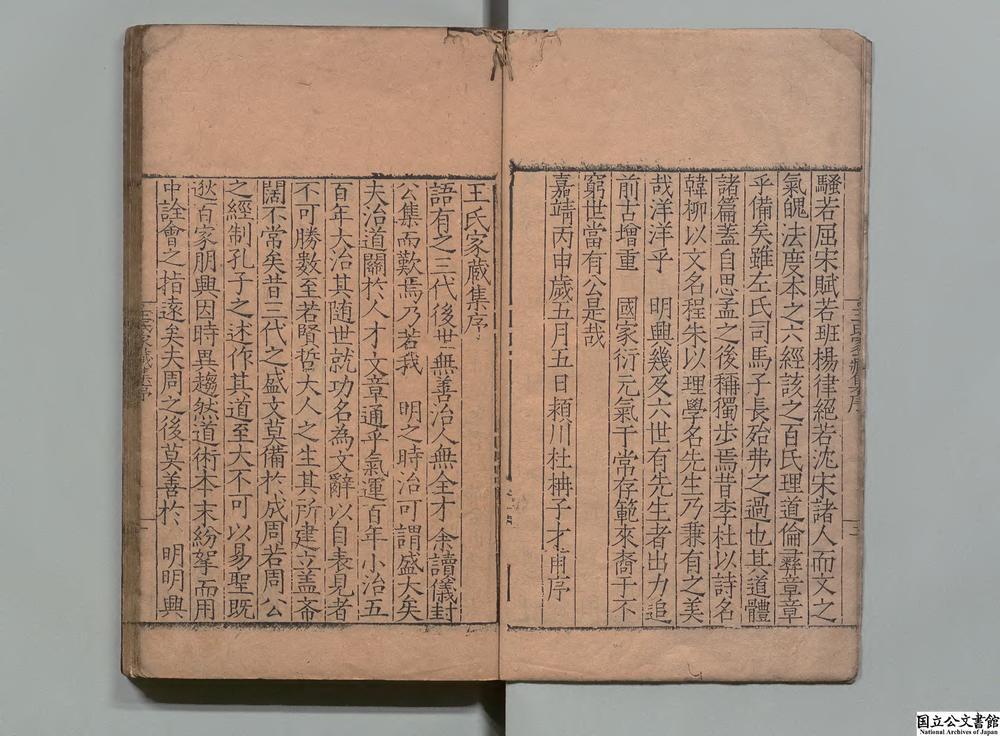 騷若屈宋賦若班楊律絕若沈宋諸人而文之
氣魄法度本之六經該之百氏理道倫彞章章
乎備矣雖左氏司馬子長殆弗之過也其道體
諸篇蓋自思孟之後稱獨步焉昔李杜以詩名
韓柳以文名程朱以理學名先生乃兼有之美
哉洋洋乎　明興幾及六世有先生者出力追
前古增重　國家衍元氣于常存範來裔于不
窮世當有公是哉
嘉靖丙申歲五月五日潁川杜柟子才甫序
王氏家藏集序
語有之三代後世無善治人無全才余讀儀封
公集而歎焉乃若我　明之時治可謂盛大矣
夫治道關於人才文章通乎氣運百年小治五
百年大治其隨世就功名為文辭以自表見者
不可勝數至若賢哲大人之生其所建立蓋
闊不常矣昔三代之盛文莫備於成周若周公
之經制孔子之述作其道至大不可以易聖旣
逖百家朋興因時異趨然道術本末紛拏而用
中詮會之指遠矣夫周之後莫善於　明明興
王氏家藏集序
國立公文書館
National Archives of Japan